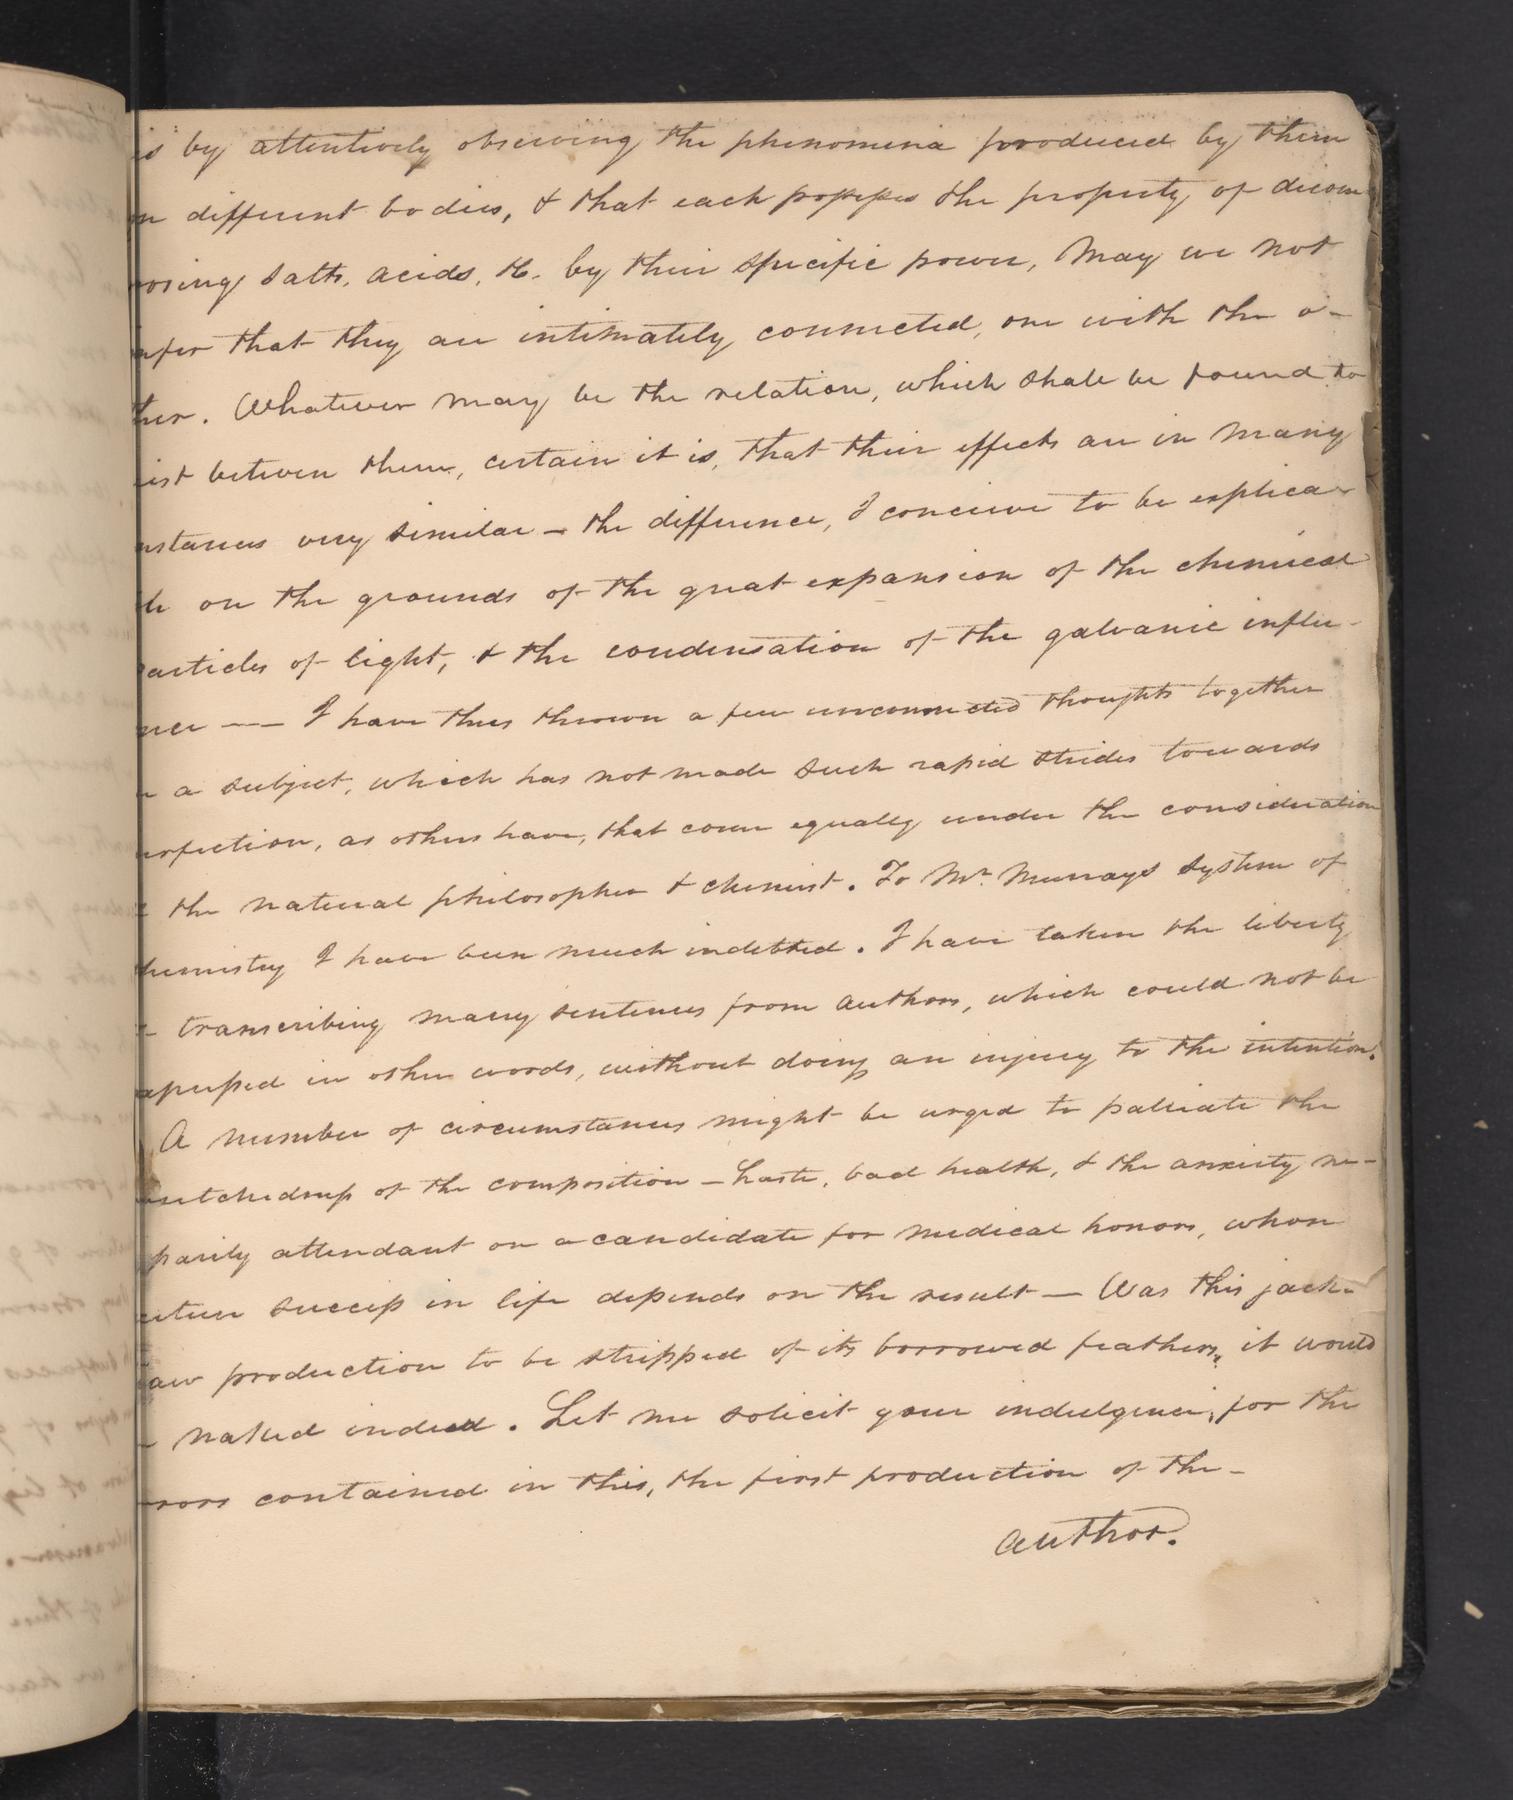 is by attentively observing the phenomena produced by them
on different bodies, & that each possesses the property of decom
posing salts, acids, &c. by their specific power, May we not
infer that they are intimately connected, one with the o-
ther. Whatever may be the relation, which shall be found to
ist between them, certain it is, that their effects are in many
nstances very similar — the difference, I conceive to be explica-
ble on the grounds of the great expansion of the chemical
particles of light, & the condensation of the galvanic influ-
ence —— I have thus thrown a few unconnected thoughts together
n a subject, which has not made such rapid strides towards
erfection, as others have, that come equally under the consideration
f the natural philosopher & chemist. To Mr. Murrays system of
hemistry I have been much indebted. I have taken the liberty
f transcribing many sentences from authors, which could not be
xpressed in other words, without doing an injury to the intention.
A number of circumstances might be urged to palliate the
wretchedness of the composition — haste, bad health, & the anxiety ne-
ssarily attendant on a candidate for medical honors, whose
uture success in life depends on the result — Was this jack-
daw production to be stripped of its borrowed feathers, it would
naked indeed. Let me solicit your indulgence, for the
rrors contained in this, the first production of the-
author.